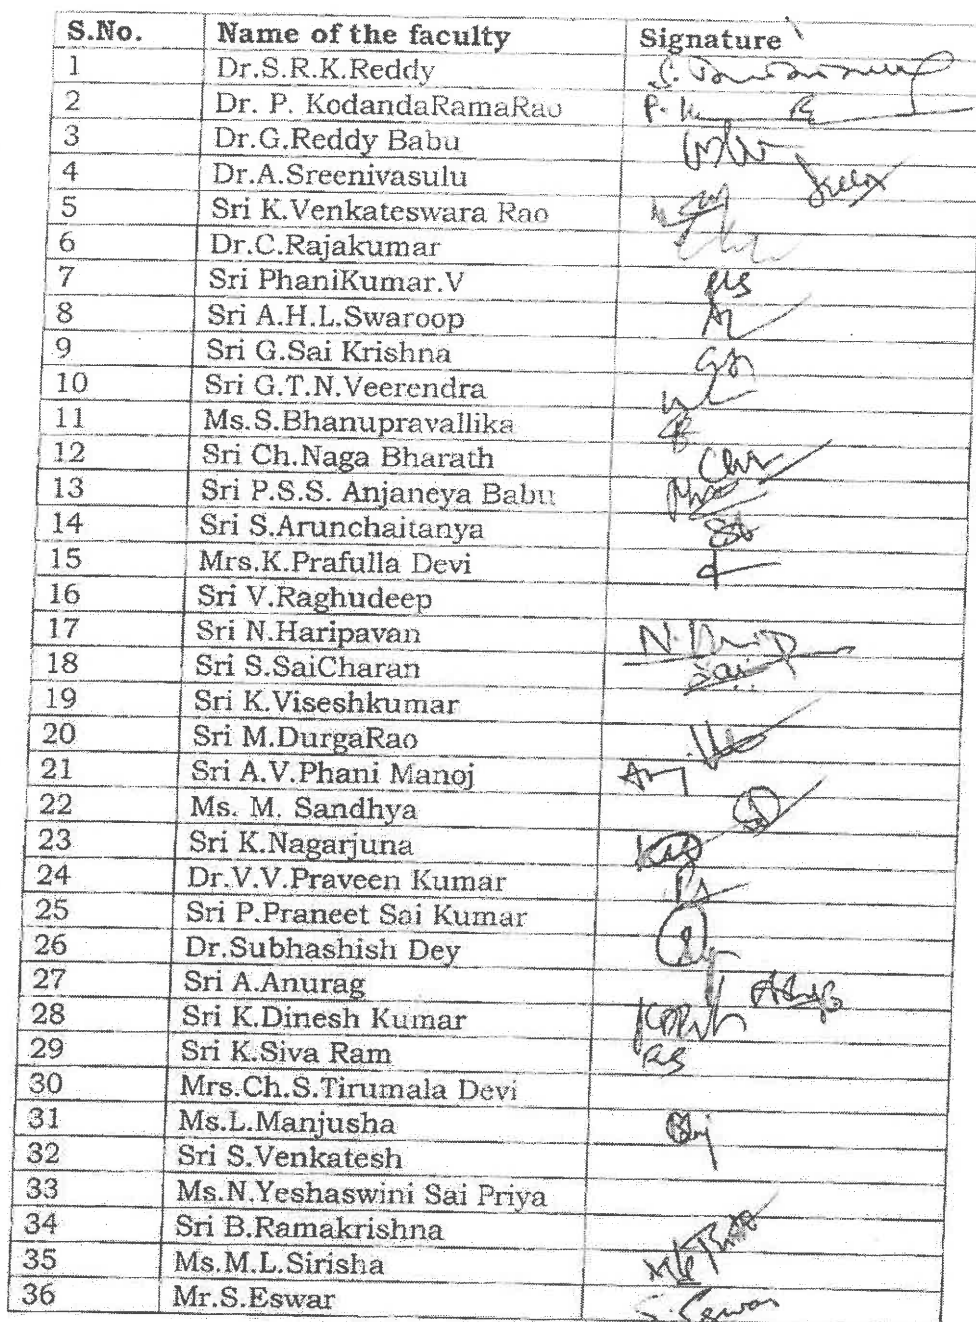 S.No. Name of the faculty Signature
1 Dr.S.R.K.Reddy
2 Dr. P. KodandaRamaRao
3 Dr.G.Reddy Babu
4 Dr.A.Sreenivasulu
5 Sri K.Venkateswara Rao
6 Dr.C.Rajakumar
7 Sri PhaniKumar.V
8 Sri A.H.L.Swaroop
9 Sri G.Sai Krishna
10 Sri G.T.N.Veerendra
11 Ms.S.Bhanupravallika
12 Sri Ch.Naga Bharath
13 Sri P.S.S. Anjaneya Babu
14 Sri S.Arunchaitanya
15 Mrs.K.Prafulla Devi
16 Sri V.Raghudeep
17 Sri N.Haripavan
18 Sri S.SaiCharan
19 Sri K.Viseshkumar
20 Sri M.DurgaRao
21 Sri A.V.Phani Manoj
22 Ms. M. Sandhya
23 Sri K.Nagarjuna
24 Dr.V.V.Praveen Kumar
25 Sri P.Praneet Sai Kumar
26 Dr.Subhashish Dey
27 Sri A.Anurag
28 Sri K.Dinesh Kumar
29 Sri K.Siva Ram
30 Mrs.Ch.S.Tirumala Devi
31 Ms.L.Manjusha
32 Sri S.Venkatesh
33 Ms.N.Yeshaswini Sai Priya
34 Sri B.Ramakrishna
35 Ms.M.L.Sirisha
36 Mr.S.Eswar S. Eswar